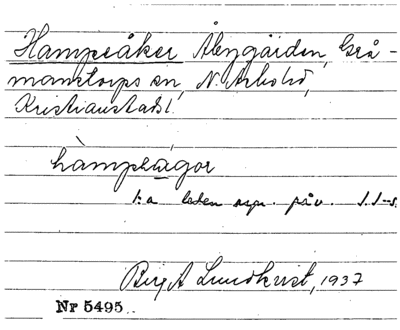 Hampeåker Åbygården, Grå-
manstorps sn, N. Åsbo hd,
Kristianstads l.
hàmpeágor
1:a leden
Birgit Lundkvist, 1937
Nr 5495